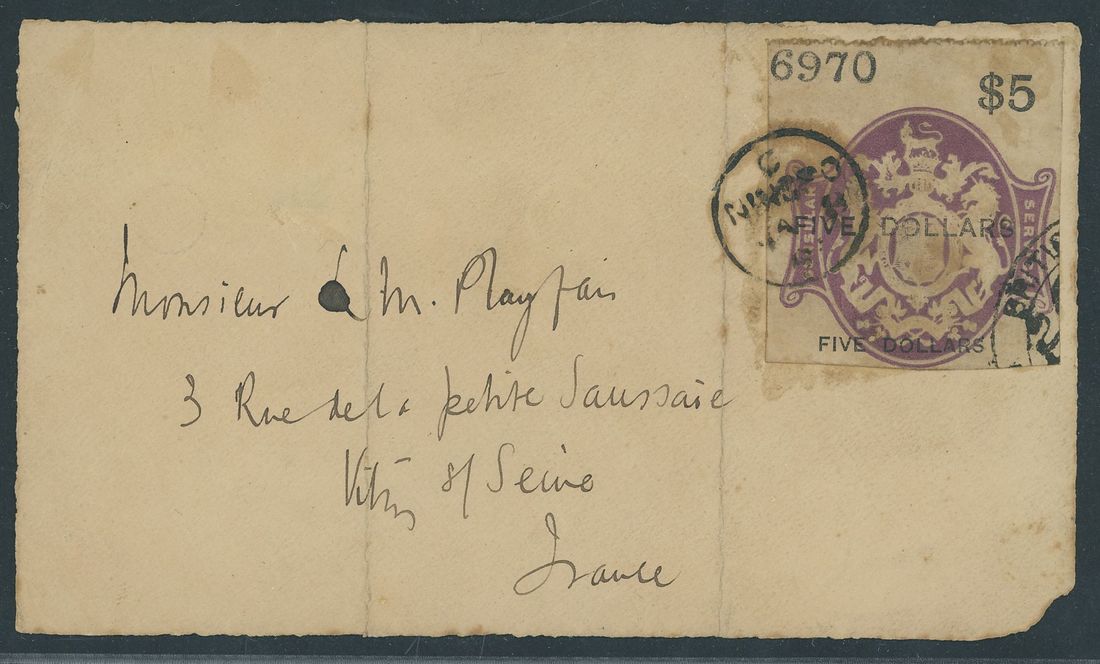 6970
$5
SERV
FIVE DOLLARS
FIVE DOLLARS
NINGPO
BRITIS
Monsieur L. M. Playfair
3 Rue de la petite Saussaie
Vitry s/ Seine
France